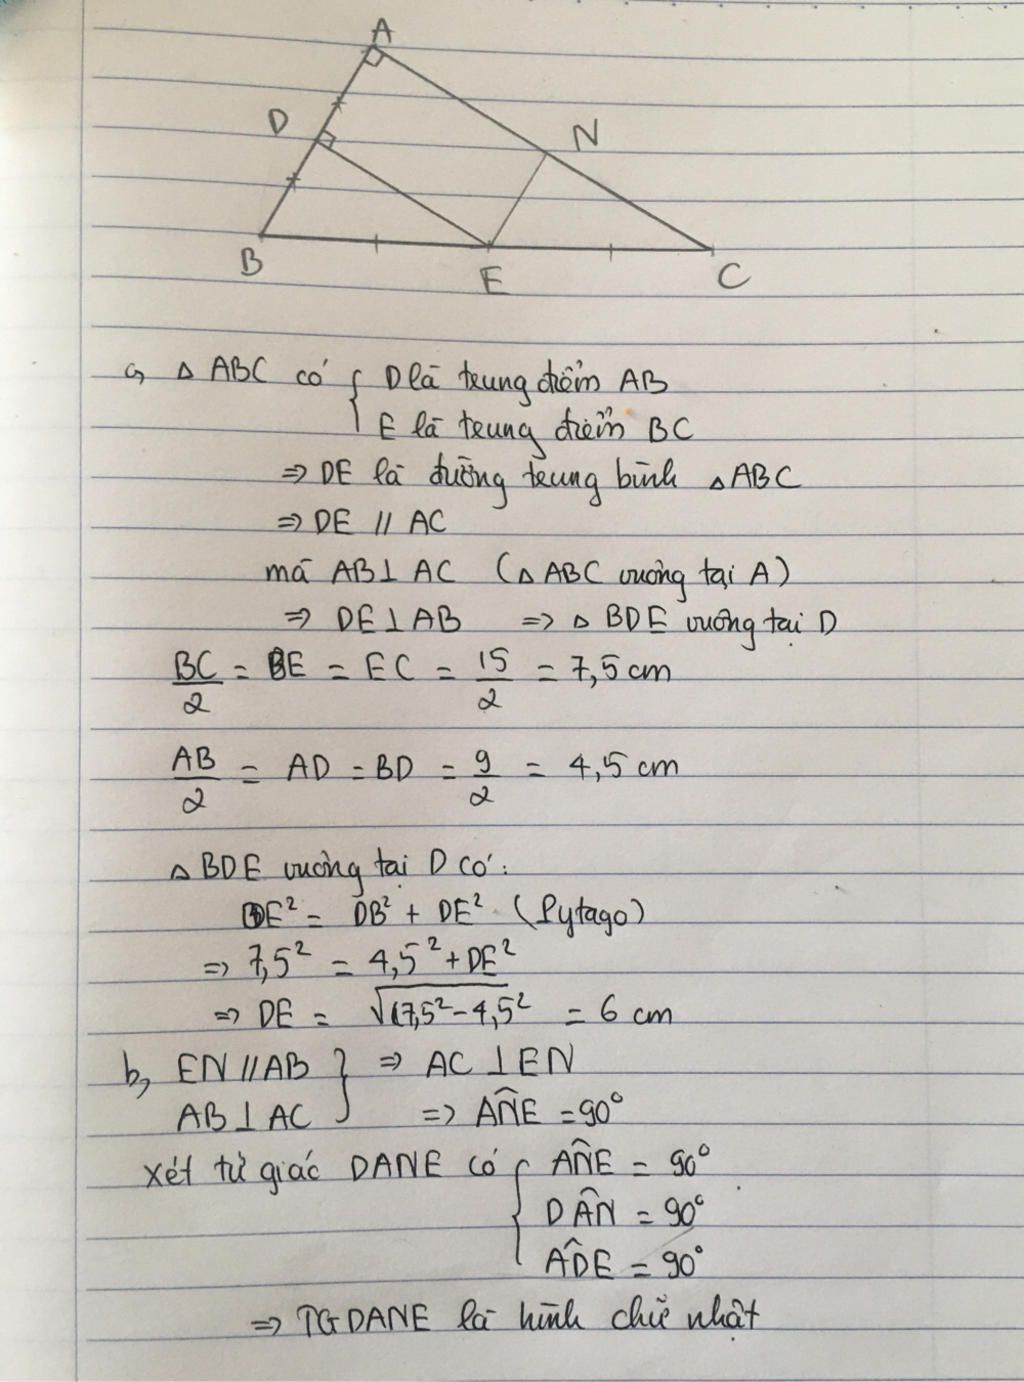 A
D
N
B
E
C
a, △ ABC có { D là trung điểm AB
E là trung điểm BC
⇒ DE là đường trung bình △ ABC
⇒ DE // AC
mà AB ⊥ AC (△ ABC vuông tại A)
⇒ DE ⊥ AB ⇒ △ BDE vuông tại D
BC/2 = BE = EC = 15/2 = 7,5 cm
AB/2 = AD = BD = 9/2 = 4,5 cm
△ BDE vuông tại D có:
BE² = DB² + DE² (Pytago)
⇒ 7,5² = 4,5² + DE²
⇒ DE = √(7,5² - 4,5² = 6 cm
b, EN // AB } ⇒ AC ⊥ EN
AB ⊥ AC ⇒ AN̂E = 90°
xét tứ giác DANE có { AN̂E = 90°
DÂN = 90°
AD̂E = 90°
⇒ TG DANE là hình chữ nhật